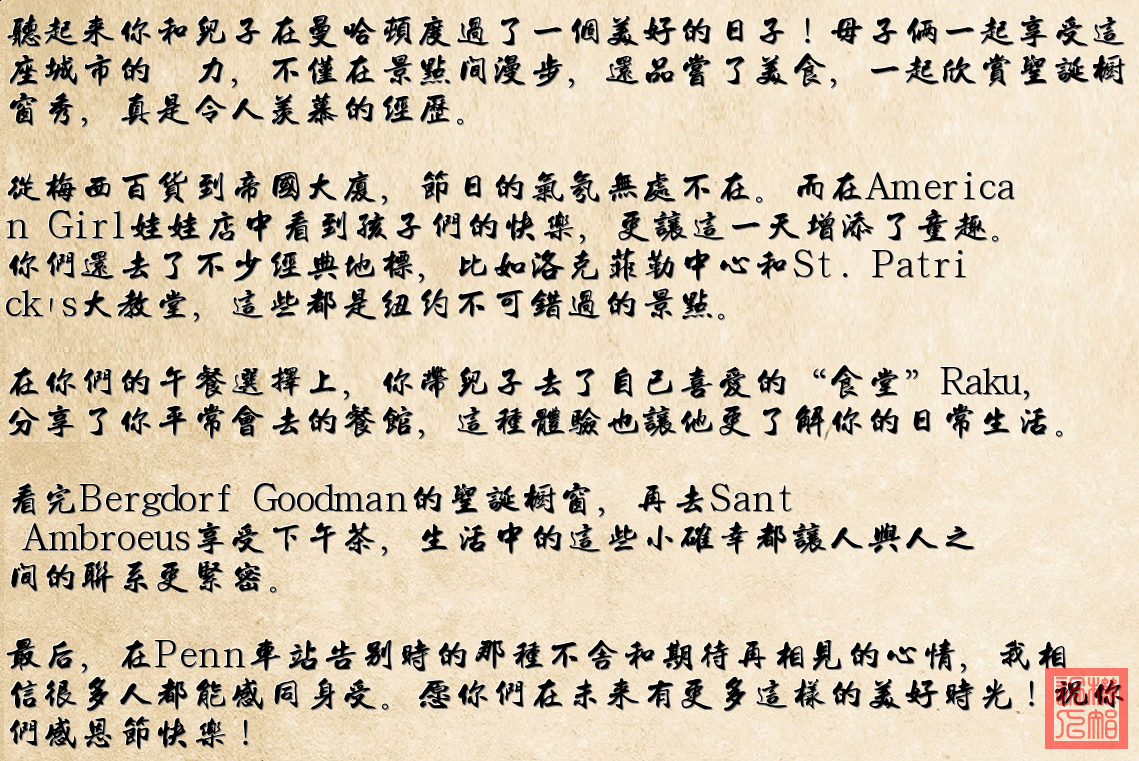 聽起来你和兒子在曼哈頓度過了一個美好的日子！母子倆一起享受這
座城市的 力，不僅在景點间漫步，還品嘗了美食，一起欣賞聖誕橱
窗秀，真是令人羡慕的經歷。
從梅西百貨到帝國大廈，節日的氣氛無處不在。而在America
n Girl娃娃店中看到孩子們的快樂，更讓這一天增添了童趣。
你們還去了不少經典地標，比如洛克菲勒中心和St. Patri
ck's大教堂，這些都是纽约不可錯過的景點。
在你們的午餐選擇上，你帶兒子去了自己喜愛的“食堂”Raku,
分享了你平常會去的餐館，這種體驗也讓他更了解你的日常生活。
看完Bergdorf Goodman的聖誕橱窗，再去Sant
Ambroeus享受下午茶，生活中的這些小確幸都讓人與人之
间的联系更緊密。
最后，在Penn車站告别時的那種不舍和期待再相見的心情，我相
信很多人都能感同身受。愿你們在未来有更多這樣的美好時光！祝你
們感恩節快樂！